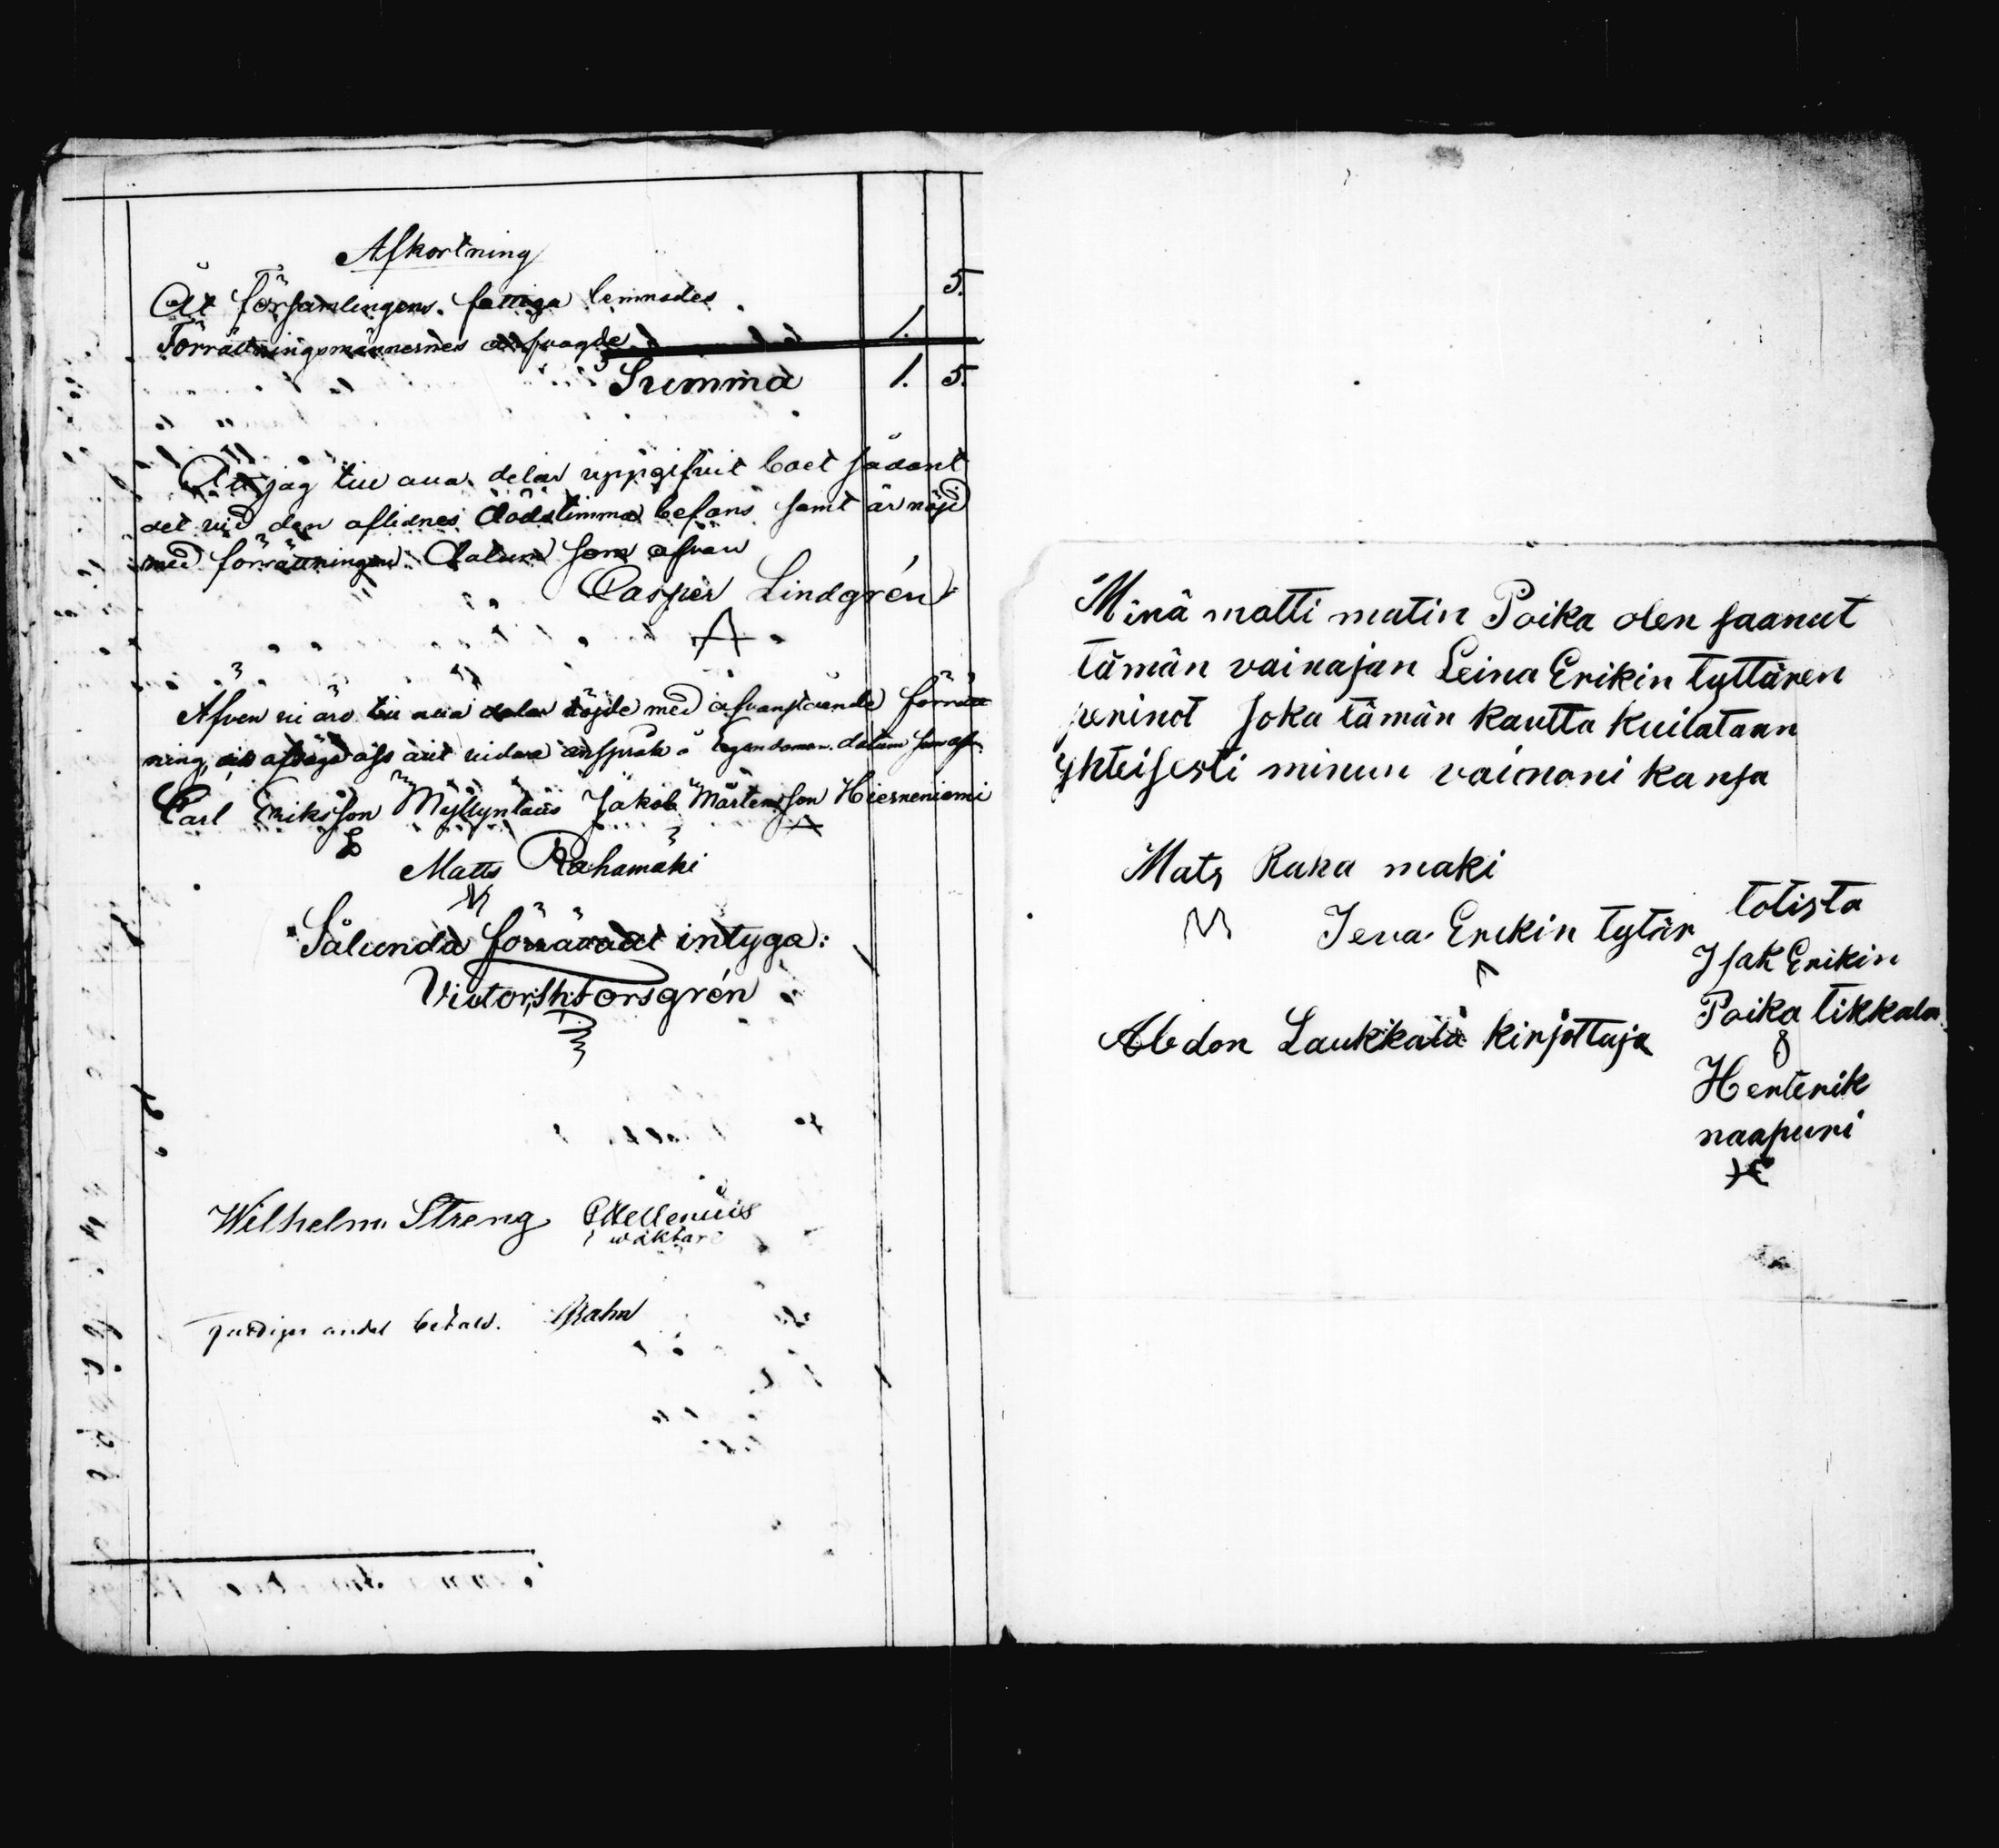 Afkortning
Åt Församlingens fattiga lemnades 5.
Förrättningsmännernes arfvode 1.
Summa 1. 5.
Att jag till alla delar uppgifvit boet sådant
det vid den aflidnes dödstimma befans samt är nöjd
med förrättningen Datum som ofvan
Casper Lindgrén
Äfven vi äro till alla delar nöjde med ofvanstående förrätt
ning, och afsäga oss allt vidare anspråk å Egendomen. datum som ofv.
Carl Eriksson Myllyntaus Jakob Mårtensson Hiesneniemi
Matts Rahamäki
Sålunda förrättadt intyga:
Victor Forsgrén
Wilhelm Streng
wäktare
andel betald.
Minä matti matin Poika olen saanut
tämän vainajan Leina Erikin tyttären
perinöt joka tämän kautta kuitataan
yhteisesti minun vaimoni kansa
Mats Raha maki
M
Ieva Erikin tytär
Abdon Laukkala kirjottaja
totista
Isak Erikin
Poika tikkala
Henterik
naapuri